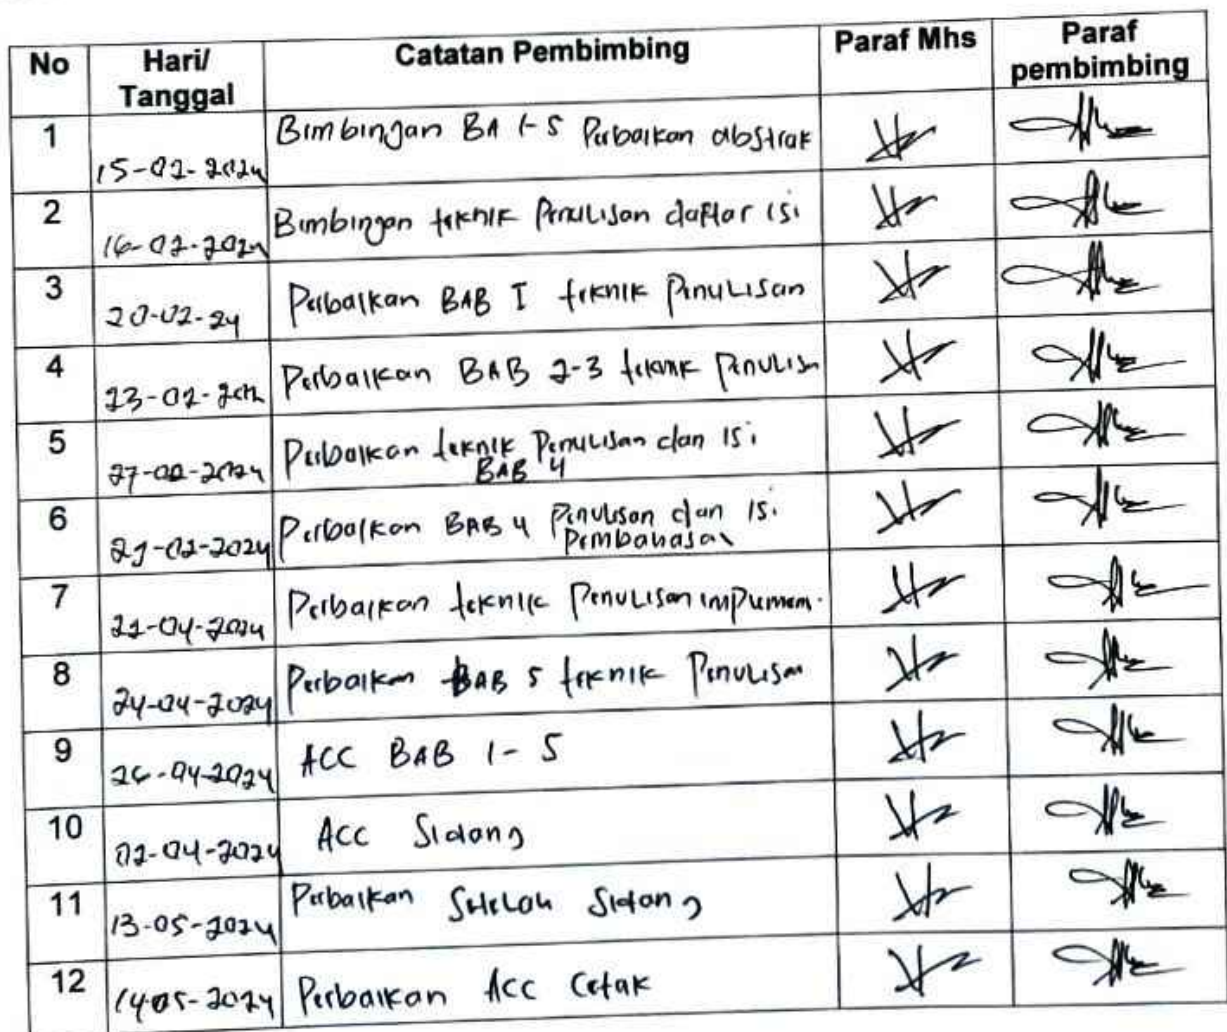 No Hari/ Tanggal Catatan Pembimbing Paraf Mhs Paraf pembimbing
1 15-02-2024 Bimbingan BA 1-5 Perbaikan abstrak
2 16-02-2024 Bimbingan teknik Penulisan daftar isi
3 20-02-24 Perbaikan BAB I teknik Penulisan
4 23-02- Perbaikan BAB 2-3 teknik Penulisn
5 27-02-2024 Perbaikan teknik Penulisan dan isi
BAB 4
6 -02-2024 Perbaikan BAB 4 Penulisan dan isi
Pembahasan
7 22-04-2024 Perbaikan teknik Penulisan implemen.
8 24-04-2024 Perbaikan BAB 5 teknik Penulisan
9 26-04-2024 ACC BAB 1-5
10 02-04-2024 ACC Sidang
11 13-05-2024 Perbaikan Setelah Sidang
12 14-05-2024 Perbaikan ACC Cetak